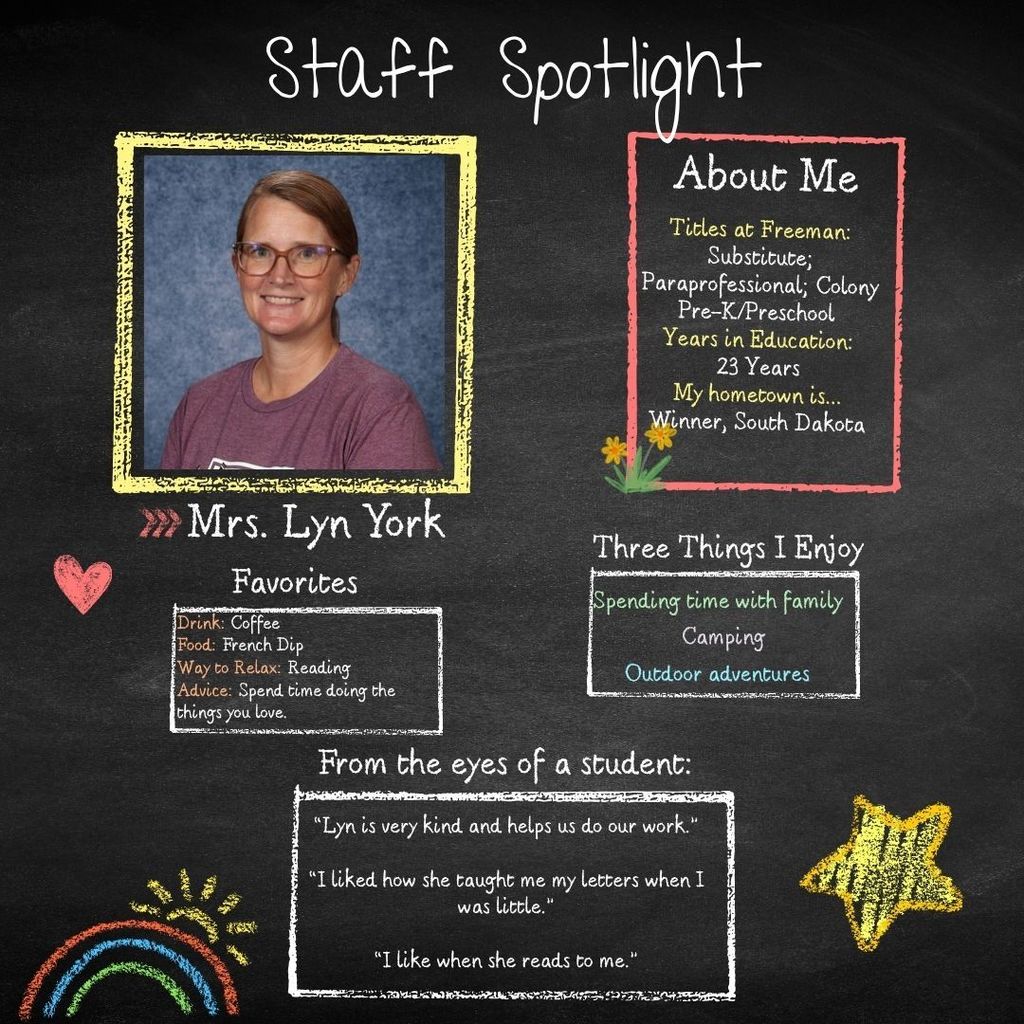 Staff Spotlight
About Me
Titles at Freeman:
Substitute;
Paraprofessional; Colony
Pre-K/Preschool
Years in Education:
23 Years
My hometown is...
Winner, South Dakota
Mrs. Lyn York
Favorites
Drink: Coffee
Food: French Dip
Way to Relax: Reading
Advice: Spend time doing the
things you love.
Three Things I Enjoy
Spending time with family
Camping
Outdoor adventures
From the eyes of a student:
"Lyn is very kind and helps us do our work."
"I liked how she taught me my letters when I
was little."
"I like when she reads to me."